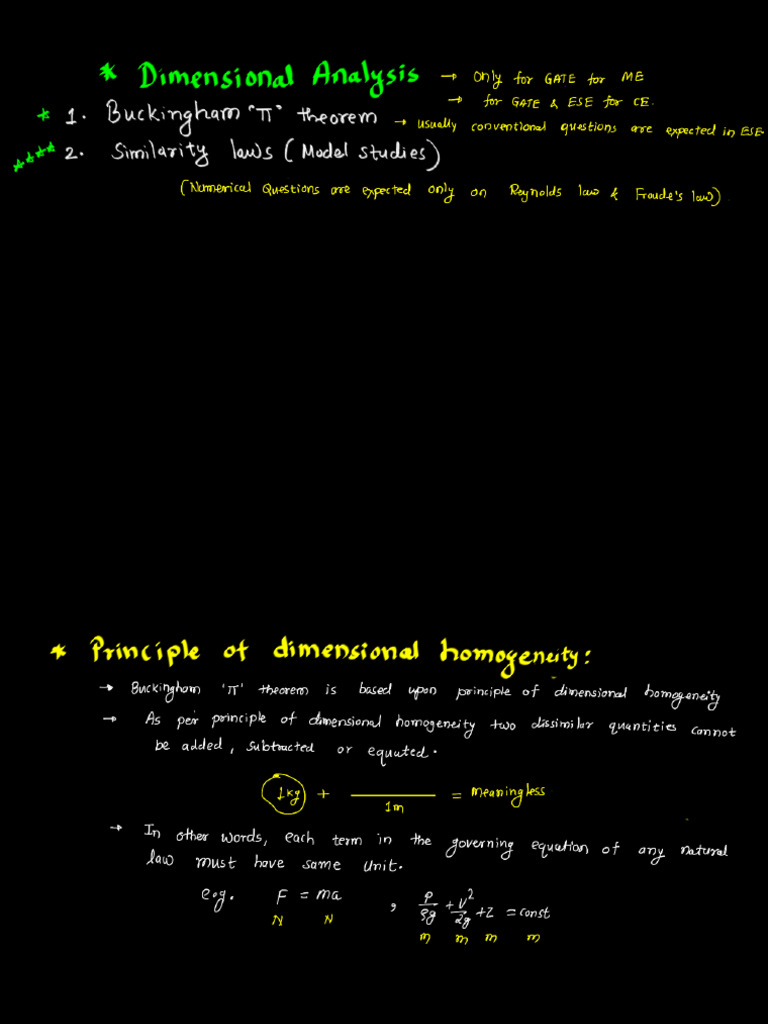 * Dimensional Analysis → Only for GATE for ME
→ for GATE & ESE for CE.
* 1. Buckingham "π" theorem → usually conventional questions are expected in ESE.
**** 2. Similarity laws (Model studies)
(Numerical Questions are expected only on Reynolds law & Froude's law).
* Principle of dimensional homogeneity:
→ Buckingham 'π' theorem is based upon principle of dimensional homogeneity
→ As per principle of dimensional homogeneity two dissimilar quantities cannot
be added, subtracted or equated.
1kg + ——— = meaningless
1m
→ In other words, each term in the governing equation of any natural
law must have same unit.
e.g. F = ma , P/ρg + V²/2g + z = const
N N m m m m